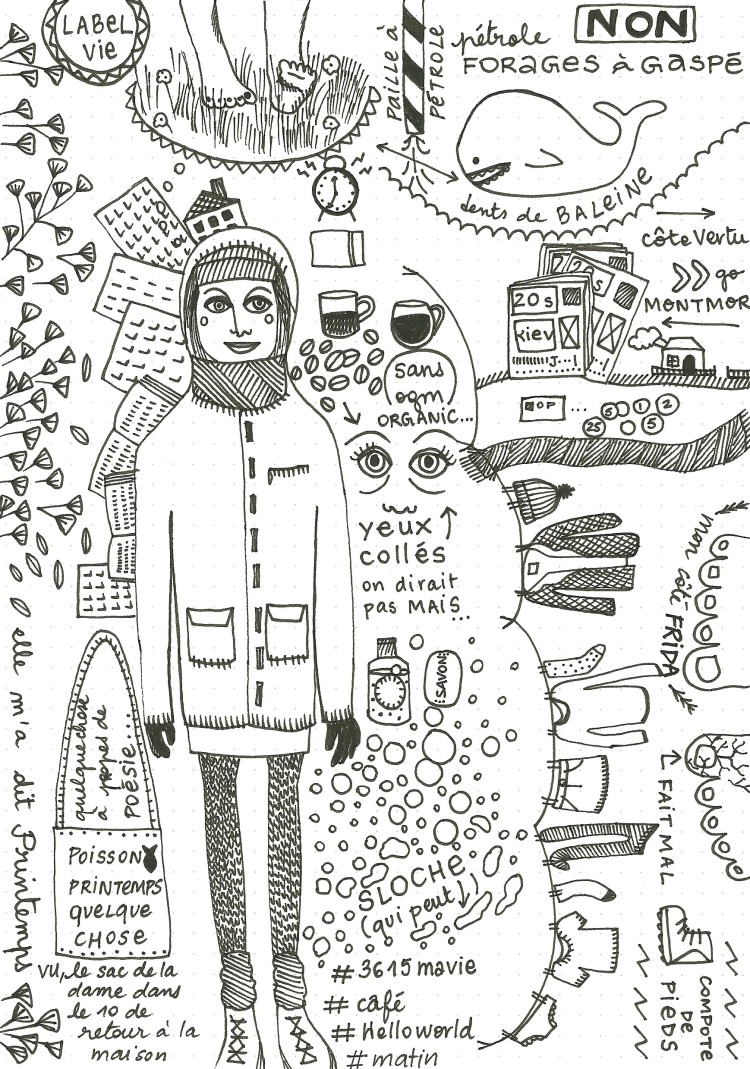 LABEL
vie
Paille à
PÉTROLE
NON
pétrole
FORAGES à GASPÉ
dents de BALEINE
côte Vertu
go
MONTMOR
20s
20s
Kiev
J...!
!
TOP ...
5 1 2
25 5
sans
ogm
ORGANIC...
yeux
collés
on dirait
pas MAIS...
mon côté FRIDA
SAVON
FAIT MAL
elle m'a dit Printemps
quelque chose
à propos de
POÉSIE...
POISSON
PRINTEMPS
QUELQUE
CHOSE
VU, le sac de la
dame dans
le 10 de
retour à la
maison
SLOCHE
(qui peut)
COMPOTE
DE
PIEDS
# 3615 mavie
# café
# Hello world
# matin